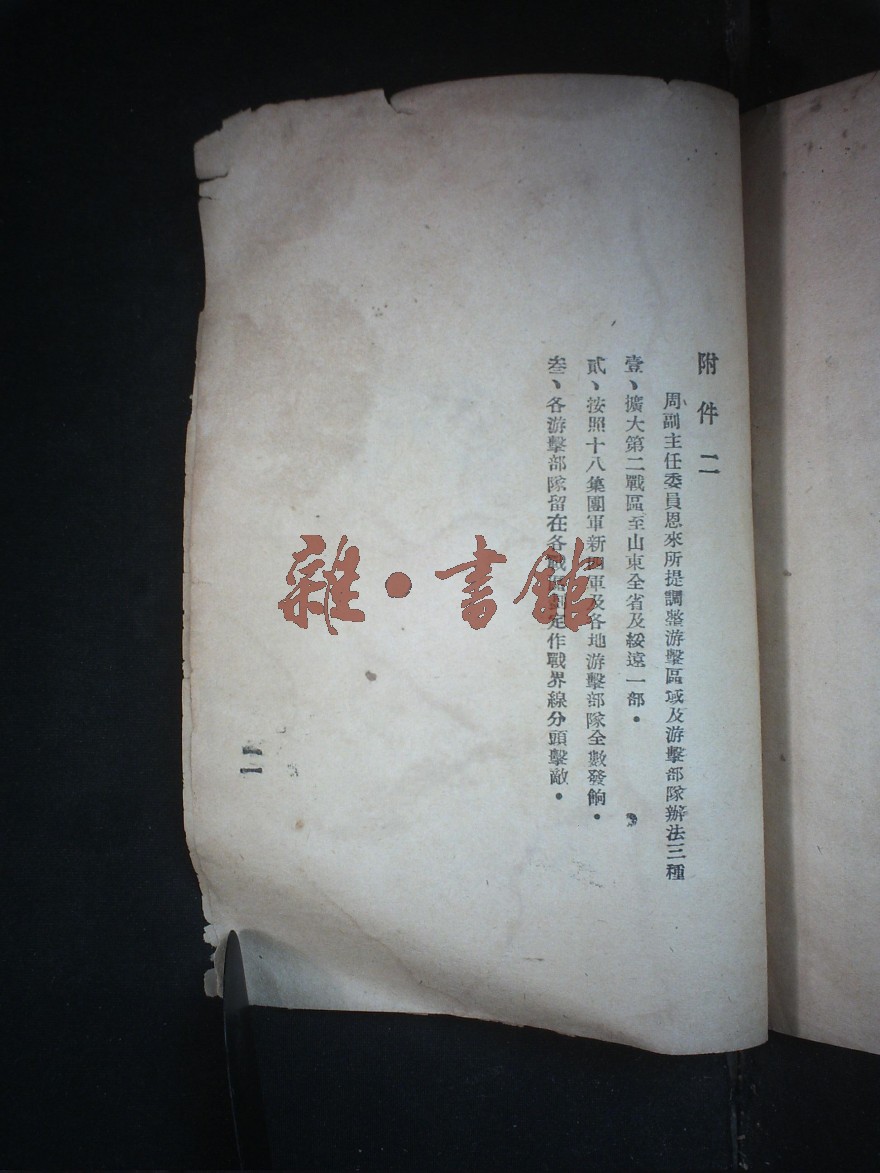 附件二
周副主任委員恩來所提調整游擊區域及游擊部隊辦法三種
壹、擴大第二戰區至山東全省及綏遠一部.
貳、按照十八集團軍新四軍及各地游擊部隊全數發餉.
叁、各游擊部隊留在各戰區劃定作戰界線分頭擊敵.
雜·書館